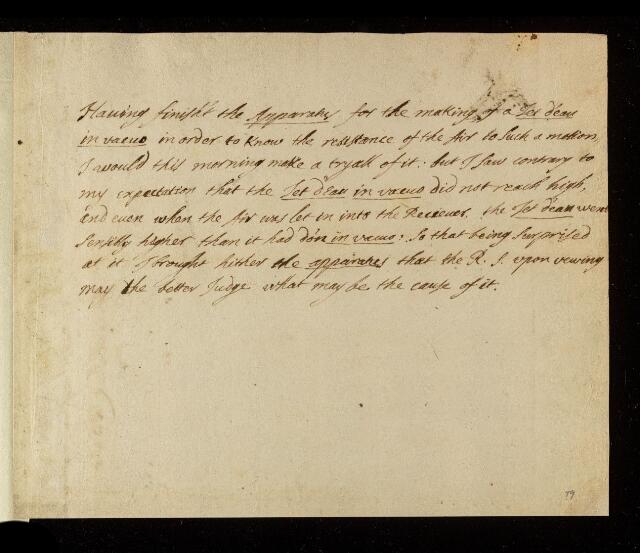 Having finish't the Apparatus for the making of a Jet d'eau
in vacuo in order to know the resistance of the Air to Such a motion,
I would this morning make a tryall of it: but I saw contrary to
my expectation that the Jet d'eau in vacuo did not reach high,
and even when the Air was let in into the Reciever, the Jet d'eau went
Sensibly higher than it had don in vacuo: So that being Surprised
at it I brought hither the apparatus that the R. S. upon viewing
may the better Judge what may be the cause of it.
79